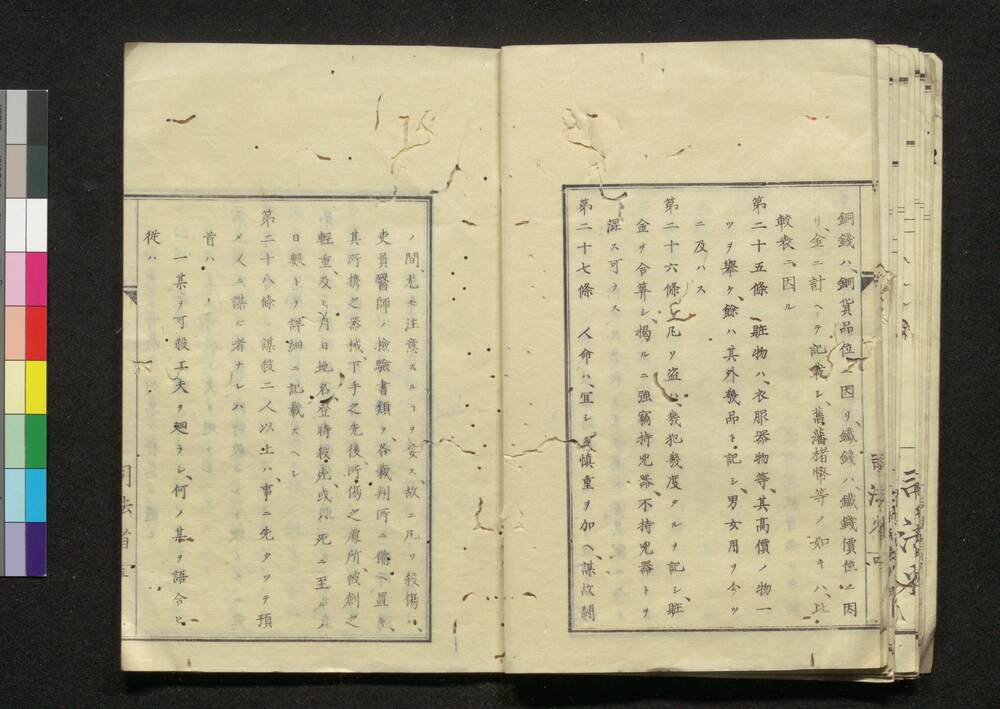 銅錢ハ、銅貨品位ニ因リ、鐵錢ハ、鐵錢價位ニ因
リ、金ニ計ヘテ記載シ、舊藩楮幣等ノ如キハ、比
較表ニ因ル
第二十五條 贓物ハ、衣服器物等、其高價ノ物一
ツヲ擧ケ、餘ハ其外幾品ト記シ、男女用ヲ分ツ
ニ及ハス
第二十六條 凡ソ盜ハ、幾犯幾度タルヲ記シ、贓
金ヲ合算シ、揭ルニ強竊持兇器、不持兇器トヲ
混ス可ラス
第二十七條 人命ハ、宜シク慎重ヲ加ヘ、謀故鬪
ノ間尤モ注意スルコヲ要ス、故ニ凡ソ殺傷ハ、
吏員醫師ノ檢驗書類ヲ、各裁判所ニ備ヘ置キ、
其所携之器械、下手之先後所傷之處所、彼創之
輕重、及ヒ月日地名登時殺死或ハ死ニ至ルノ
日數トヲ詳細ニ記載スヘシ
第二十八條 謀殺二人以上ハ、事ニ先タツテ預
メ人ニ謀ル者ナレハ
首ハ
一某ヲ可殺工夫ヲ廻ラシ、何ノ某ヲ語合ヒ
從ハ
司法省